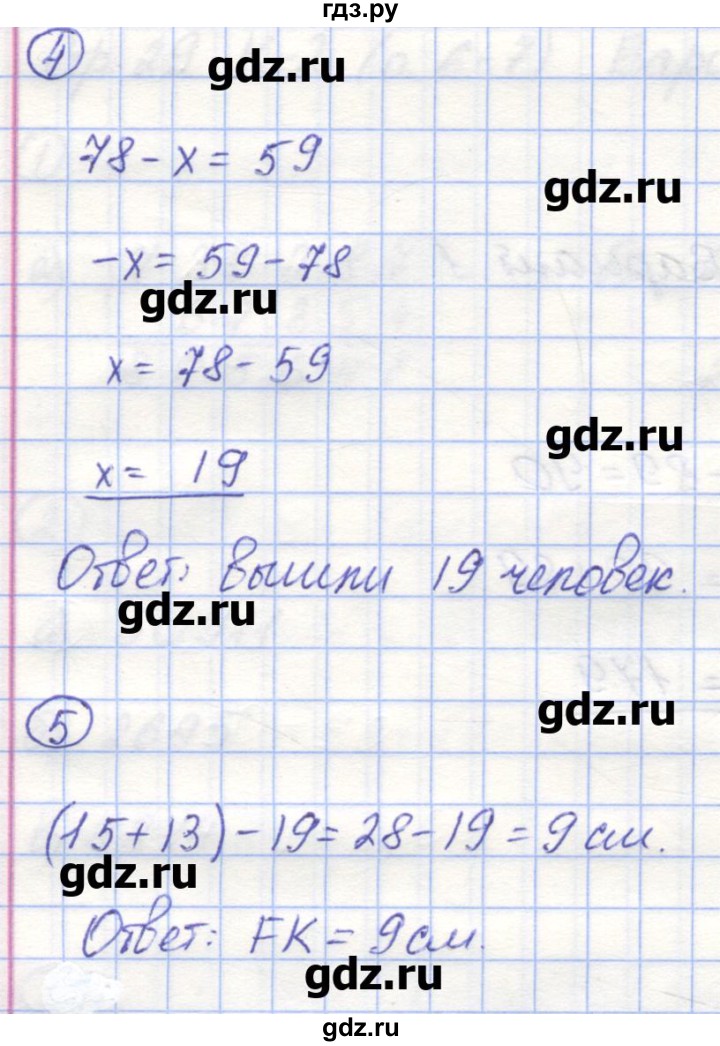 гдз.ру
4
gdz.ru
78 - x = 59
gdz.ru
-x = 59 - 78
gdz.ru
x = 78 - 59
gdz.ru
x = 19
Ответ: вышли 19 человек.
gdz.ru
5
gdz.ru
(15 + 13) - 19 = 28 - 19 = 9 см.
gdz.ru
Ответ: FK = 9 см.
gdz.ru
gdz.ru